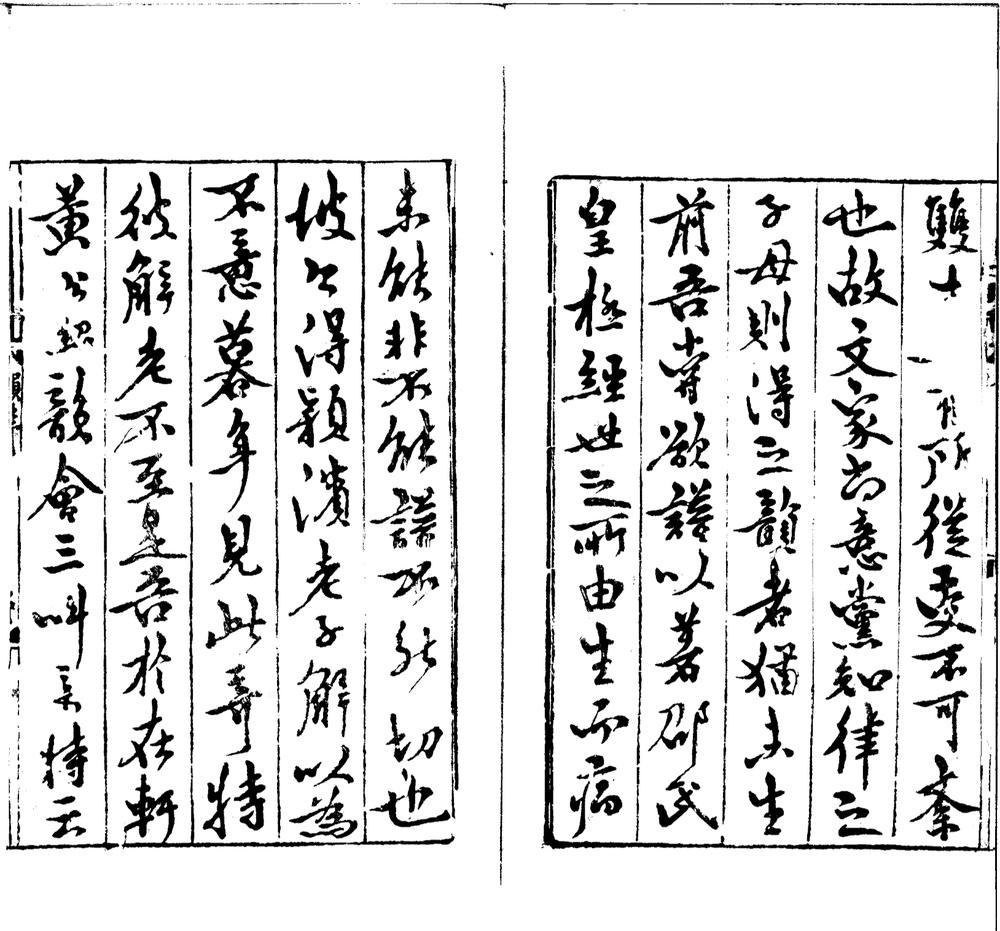 雙十一 所從受不可紊
也故文家尚意黨知律之
子母則得之韻者猶未生
前吾嘗欲譔以著邵氏
皇極經世之所由生而病
未能非不能譔不能切也
坡公得潁濱老子解以為
不意暮年見此奇特
彼解老不至是吾於在軒
黃公 韻會三叫 奇特云